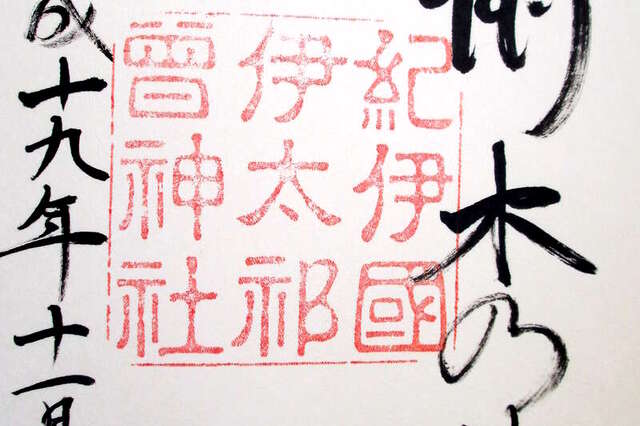 木乃
紀伊國
伊太祁
曾神社
成十九年十一月